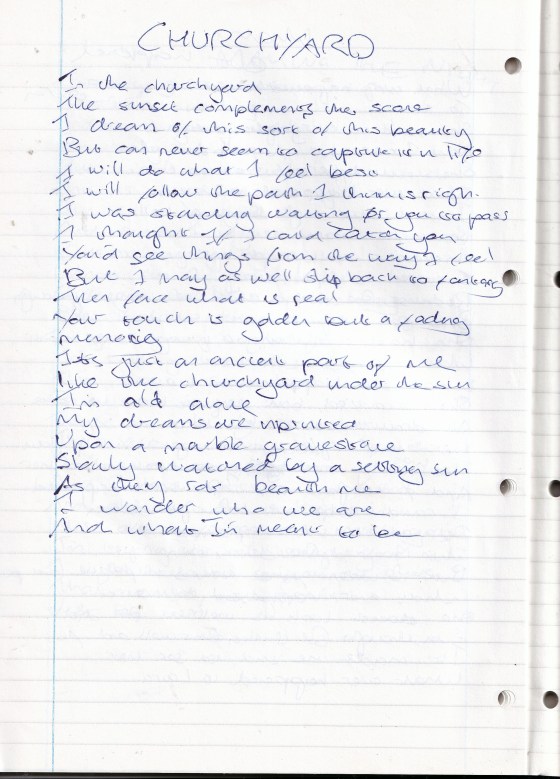 CHURCHYARD
In the churchyard
The sunset complements the scene
I dream of this sort of this beauty
But can never seem to capture it in life
I will do what I feel best
I will follow the path I think is right.
I was standing waiting for you to pass
I thought if I could catch you
You'd see things from the way I feel
But I may as well slip back to fantasy
Then face what is real
Your touch is golden but a fading
memory
Its just an ancient part of me
Like the churchyard under the sun
I'm old alone
My dreams are
Upon a marble gravestone
Slowly watched by a setting sun
As they rot beneath me
I wonder who we are
And what I'm meant to be